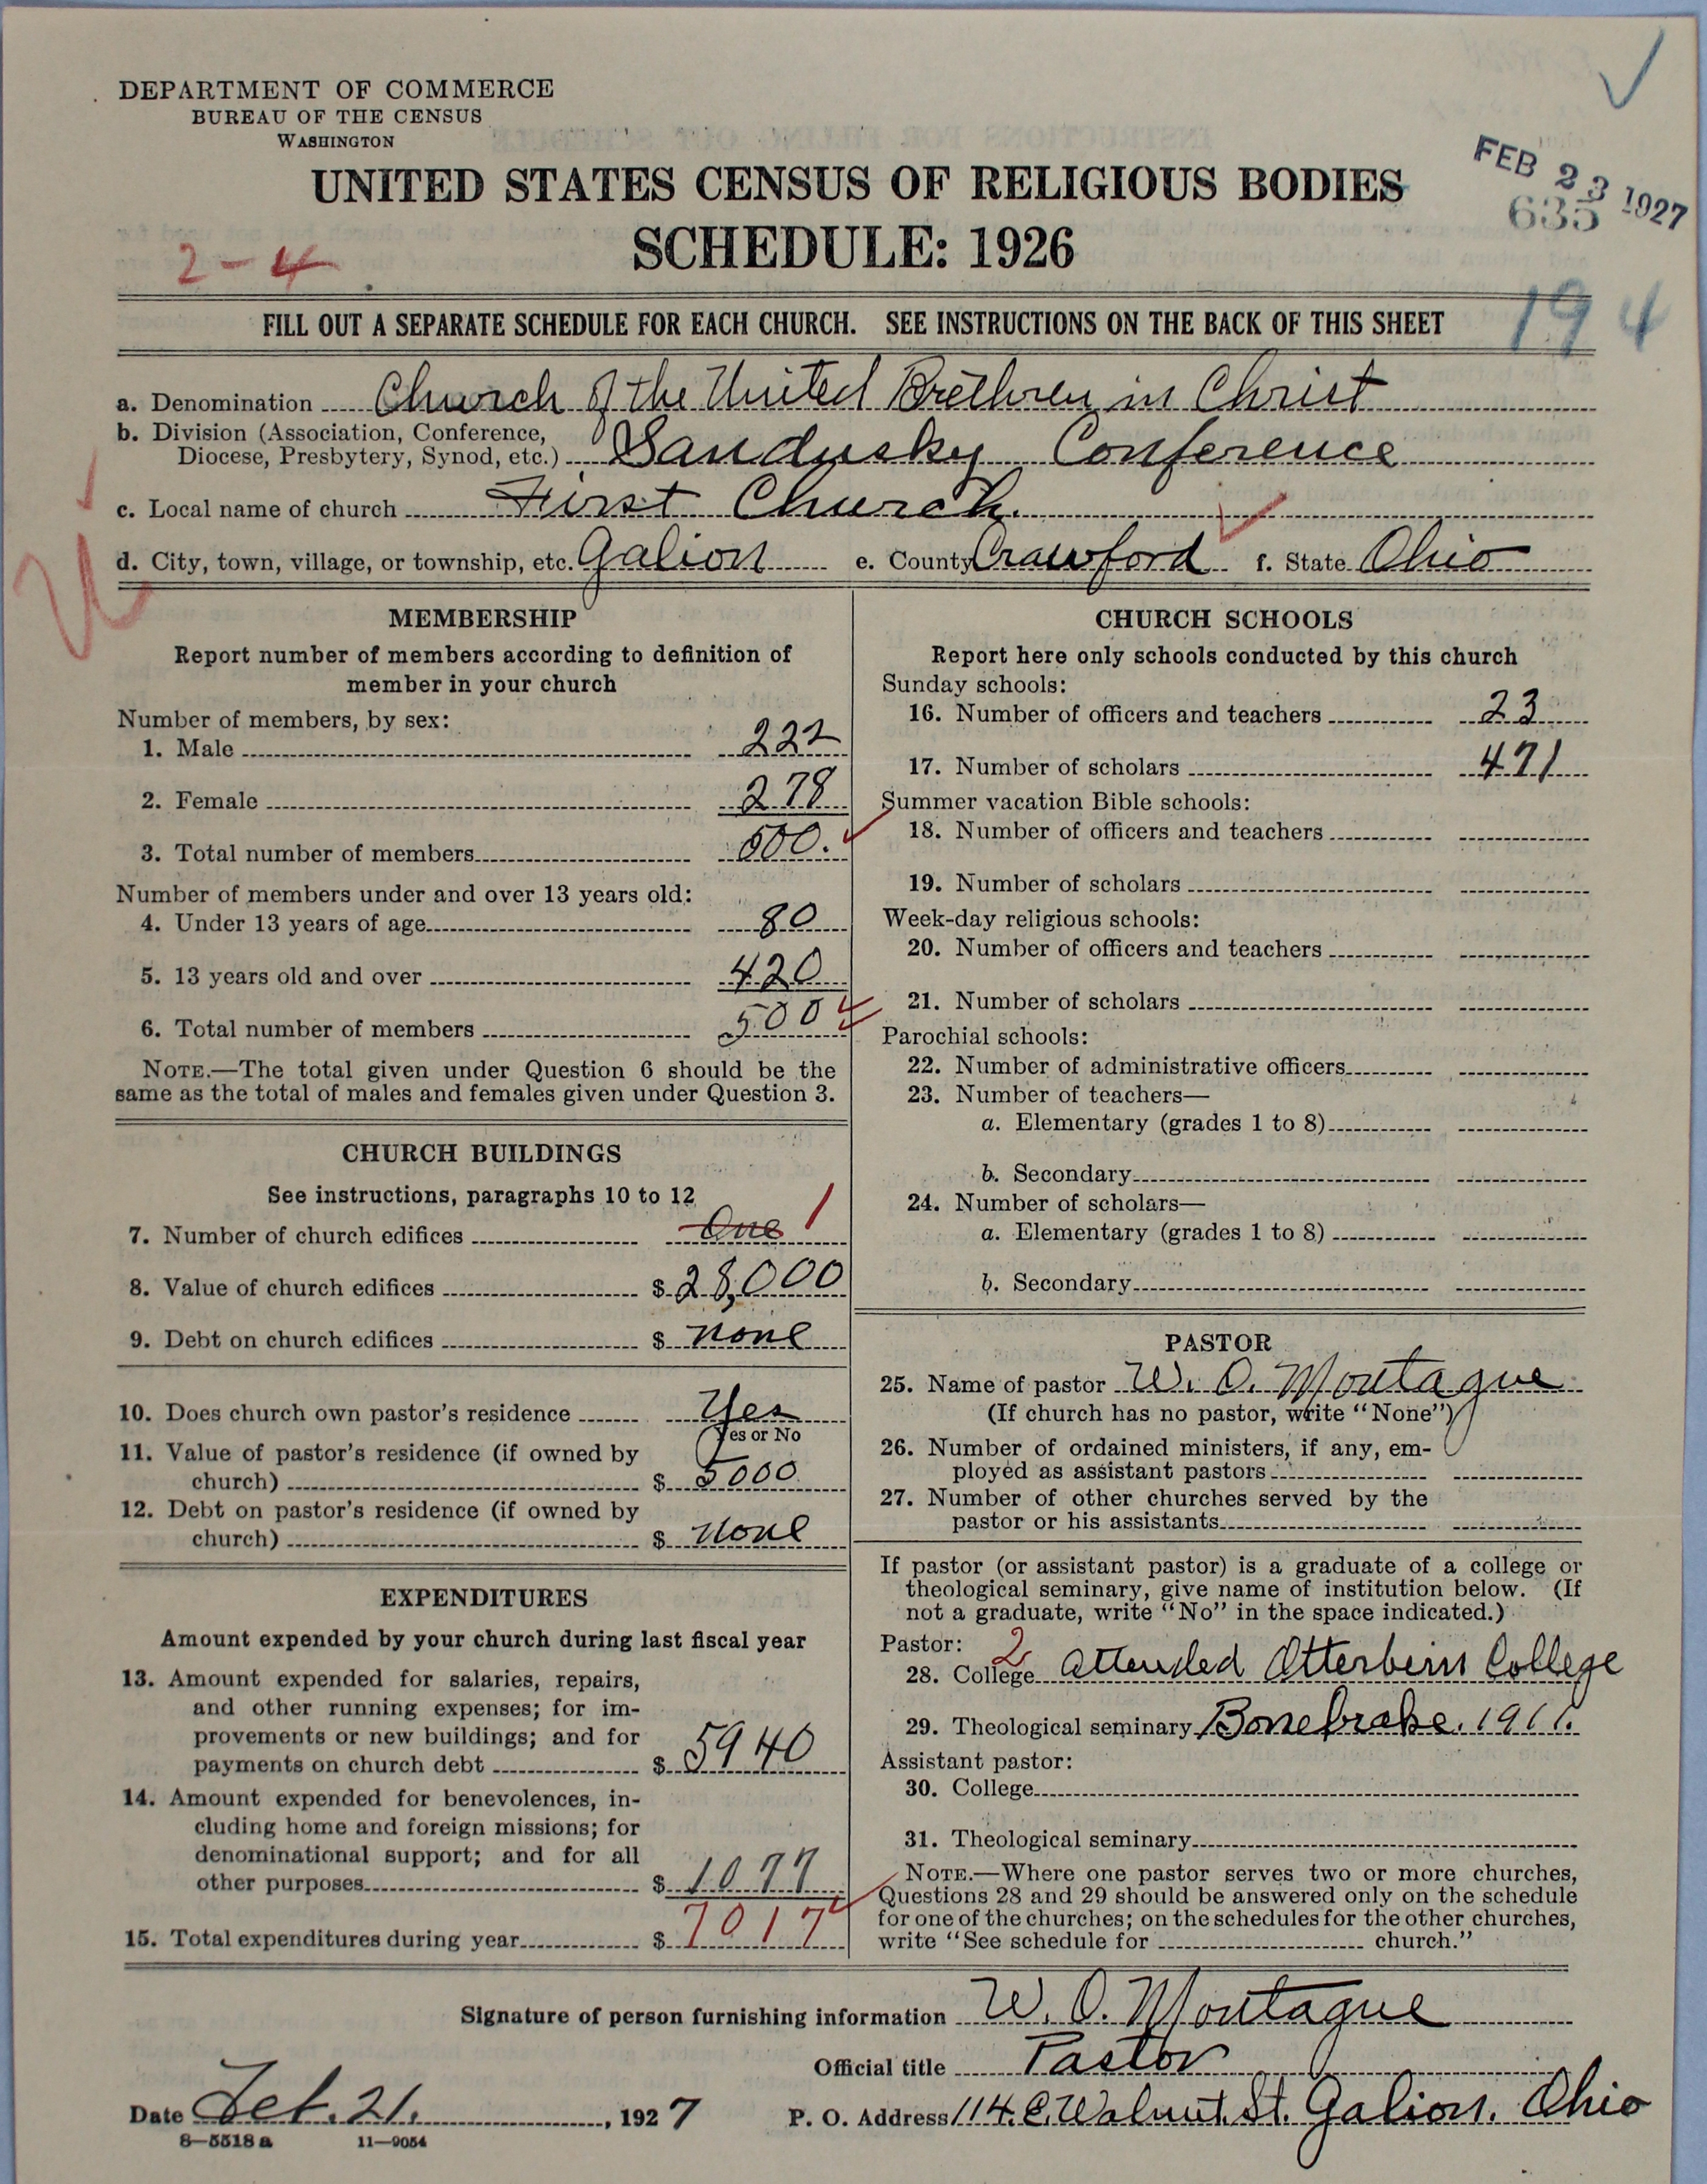 DEPARTMENT OF COMMERCE
BUREAU OF THE CENSUS
WASHINGTON
UNITED STATES CENSUS OF RELIGIOUS BODIES
SCHEDULE: 1926
FEB 23 1927
635
2-4
194
FILL OUT A SEPARATE SCHEDULE FOR EACH CHURCH. SEE INSTRUCTIONS ON THE BACK OF THIS SHEET
a. Denomination Church of the United Brethren in Christ
b. Division (Association, Conference,
Diocese, Presbytery, Synod, etc.) Sandusky Conference
c. Local name of church First Church.
d. City, town, village, or township, etc. Galion e. County Crawford f. State Ohio
MEMBERSHIP
Report number of members according to definition of
member in your church
Number of members, by sex:
1. Male 222
2. Female 278
3. Total number of members 500.
Number of members under and over 13 years old:
4. Under 13 years of age 80
5. 13 years old and over 420
6. Total number of members 500
NOTE.—The total given under Question 6 should be the
same as the total of males and females given under Question 3.
CHURCH BUILDINGS
See instructions, paragraphs 10 to 12
7. Number of church edifices One 1
8. Value of church edifices $ 28,000
9. Debt on church edifices $ none
10. Does church own pastor's residence Yes
Yes or No
11. Value of pastor's residence (if owned by
church) $ 5000
12. Debt on pastor's residence (if owned by
church) $ none
EXPENDITURES
Amount expended by your church during last fiscal year
13. Amount expended for salaries, repairs,
and other running expenses; for im-
provements or new buildings; and for
payments on church debt $ 5940
14. Amount expended for benevolences, in-
cluding home and foreign missions; for
denominational support; and for all
other purposes $ 1077
15. Total expenditures during year $ 7017
CHURCH SCHOOLS
Report here only schools conducted by this church
Sunday schools:
16. Number of officers and teachers 23
17. Number of scholars 471
Summer vacation Bible schools:
18. Number of officers and teachers
19. Number of scholars
Week-day religious schools:
20. Number of officers and teachers
21. Number of scholars
Parochial schools:
22. Number of administrative officers
23. Number of teachers—
a. Elementary (grades 1 to 8)
b. Secondary
24. Number of scholars—
a. Elementary (grades 1 to 8)
b. Secondary
PASTOR
25. Name of pastor W. O. Montague
(If church has no pastor, write "None")
26. Number of ordained ministers, if any, em-
ployed as assistant pastors
27. Number of other churches served by the
pastor or his assistants
If pastor (or assistant pastor) is a graduate of a college or
theological seminary, give name of institution below. (If
not a graduate, write "No" in the space indicated.)
Pastor: 2
28. College Attended Otterbein College
29. Theological seminary Bonebrake. 1911.
Assistant pastor:
30. College
31. Theological seminary
NOTE.—Where one pastor serves two or more churches,
Questions 28 and 29 should be answered only on the schedule
for one of the churches; on the schedules for the other churches,
write "See schedule for church."
Signature of person furnishing information W. O. Montague
Official title Pastor
Date Feb. 21, 1927 P. O. Address 114. E. Walnut. St. Galion. Ohio
8—5518 a 11—9054